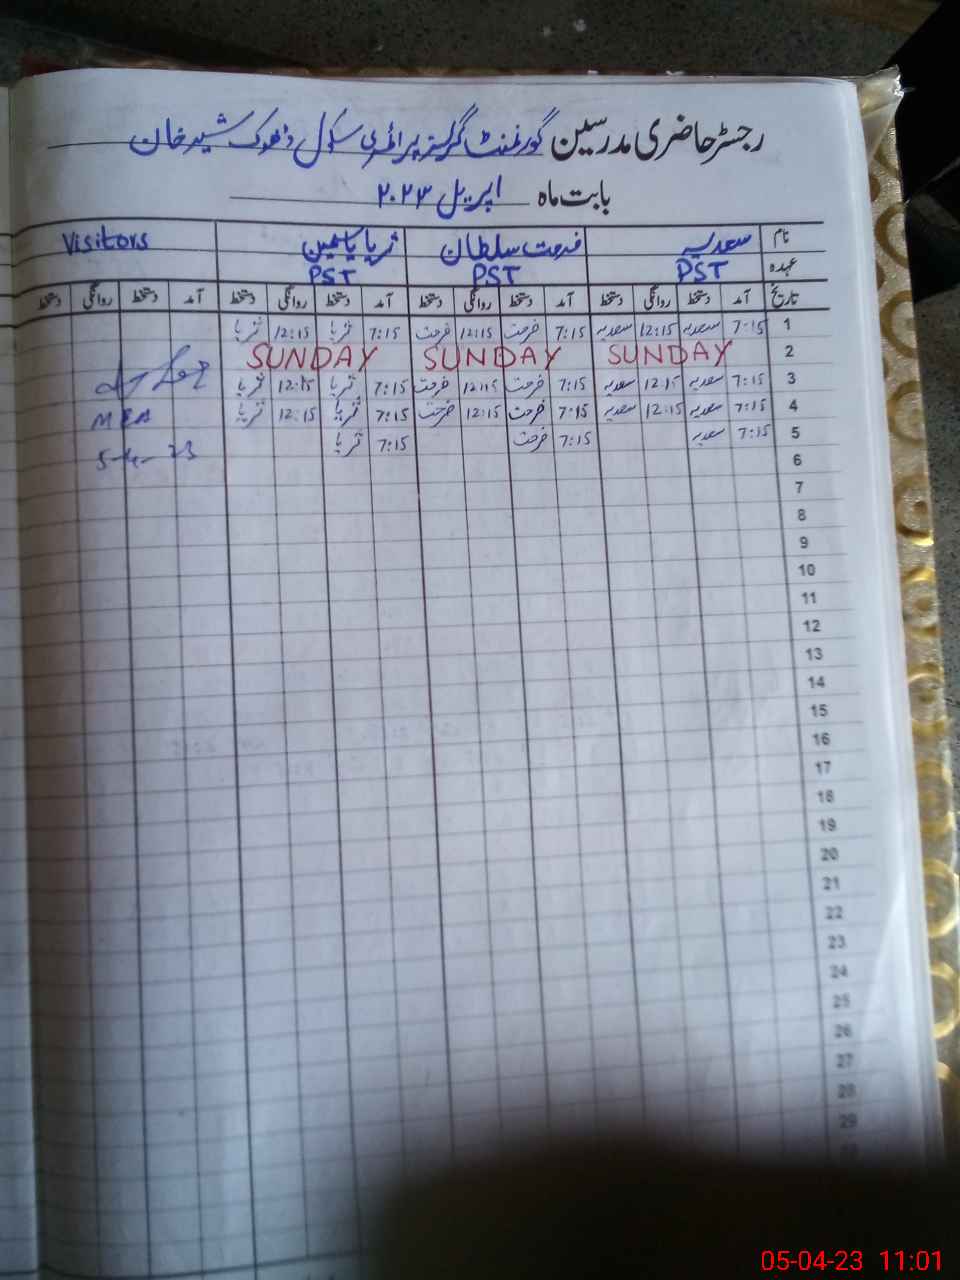 رجسٹر حاضری مدرسین گورنمنٹ گرلز پرائمری سکول ڈھوک شیر خان
بابت ماہ اپریل ۲۰۲۳
نام سعدیہ فرحت سلطان ثریا یاسمین Visitors
عہدہ PST PST PST
تاریخ آمد دستخط روانگی دستخط آمد دستخط روانگی دستخط آمد دستخط روانگی دستخط آمد دستخط روانگی دستخط
1 7:15 سعدیہ 12:15 سعدیہ 7:15 فرحت 12:15 فرحت 7:15 ثریا 12:15 ثریا
2 SUNDAY SUNDAY SUNDAY
3 7:15 سعدیہ 12:15 سعدیہ 7:15 فرحت 12:15 فرحت 7:15 ثریا 12:15 ثریا
4 7:15 سعدیہ 12:15 سعدیہ 7:15 فرحت 12:15 فرحت 7:15 ثریا 12:15 ثریا MEA
5 7:15 سعدیہ 7:15 فرحت 7:15 ثریا 5-4-23
6
7
8
9
10
11
12
13
14
15
16
17
18
19
20
21
22
23
24
25
26
27
28
29
05-04-23 11:01